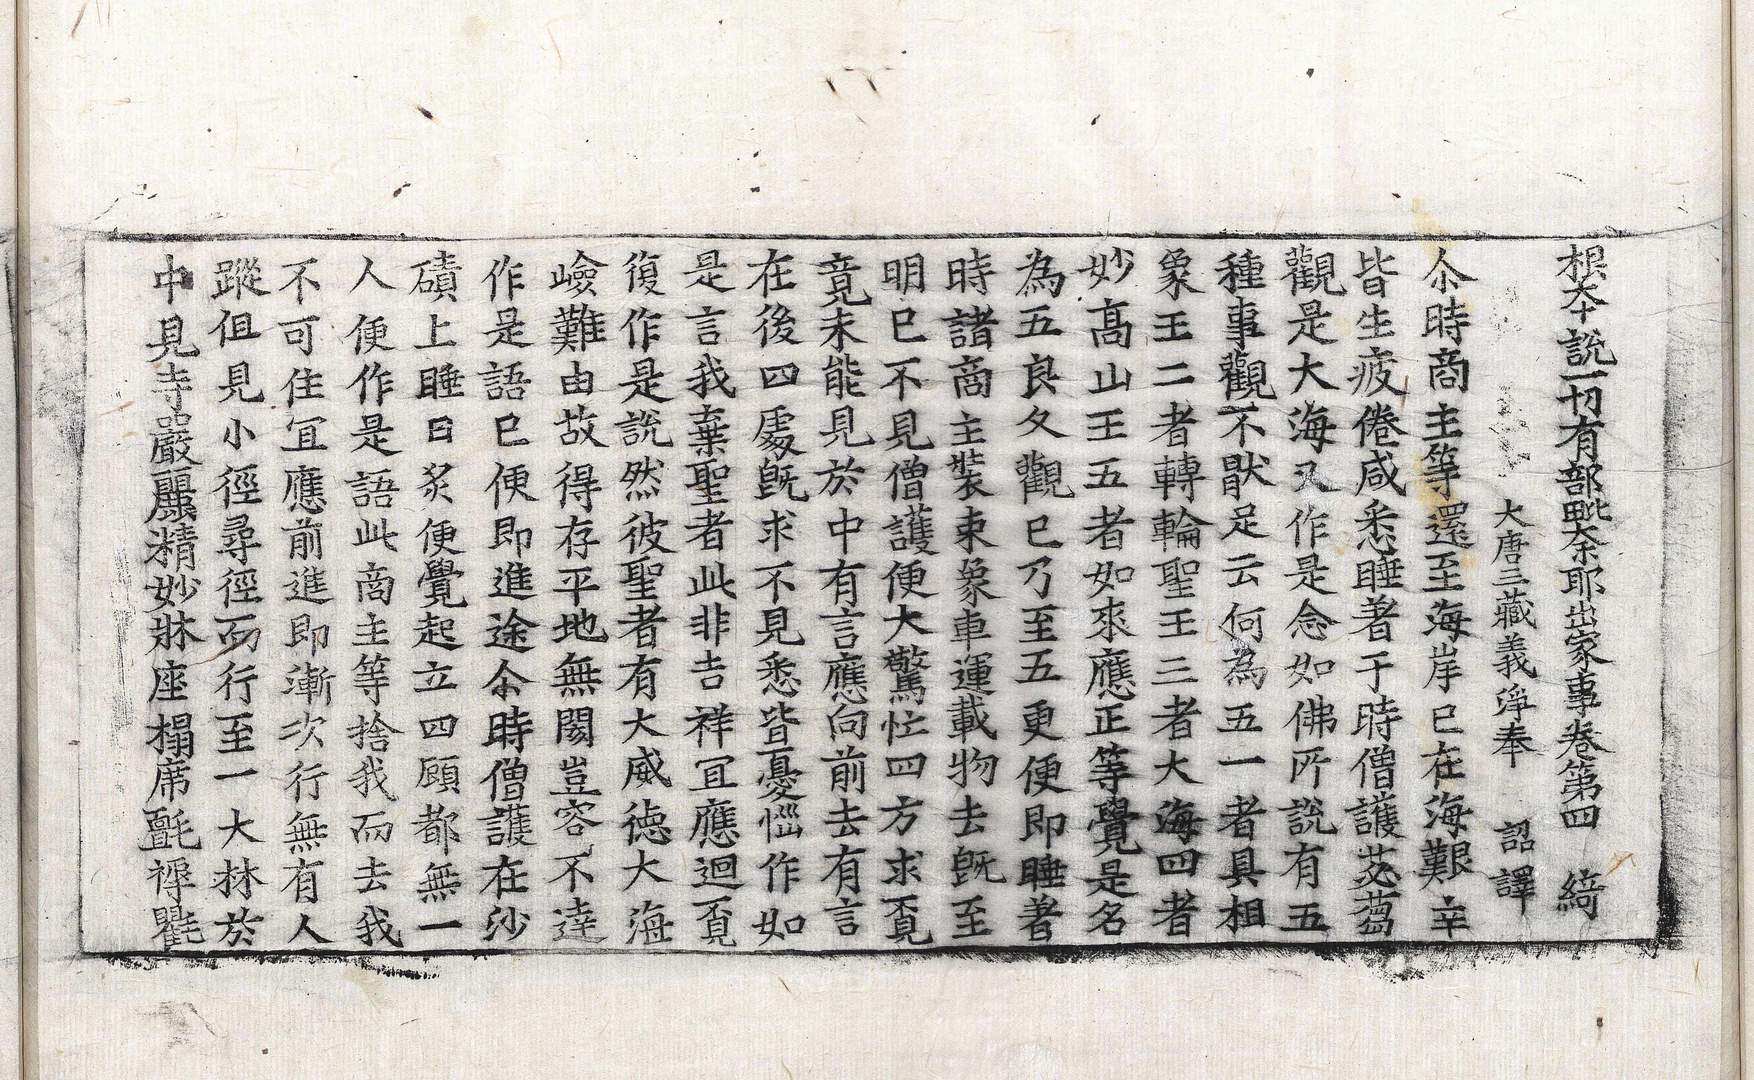 根夲說一切有部毗奈耶出家事卷第四　綺
大唐三藏義淨奉　詔譯
尒時商主等還至海岸已在海艱辛
皆生疲倦咸悉睡著于時僧護苾蒭
觀是大海又作是念如佛所說有五
種事觀不猒足云何為五一者具相
象王二者轉輪聖王三者大海四者
妙高山王五者如來應正等覺是名
為五良久觀已乃至五更便即睡著
時諸商主裝束象車運載物去旣至
明已不見僧護便大驚忙四方求覓
竟未能見於中有言應向前去有言
在後四處旣求不見悉皆憂惱作如
是言我棄聖者此非吉祥冝應迴覓
復作是說然彼聖者有大威德大海
嶮難由故得存平地無閡豈容不達
作是語已便即進途尒時僧護在沙
磧上睡日炙便覺起立四顧都無一
人便作是語此商主等捨我而去我
不可住冝應前進即漸次行無有人
蹤但見小徑尋徑而行至一大林於
中見寺嚴麗精妙牀座榻席氈褥氍